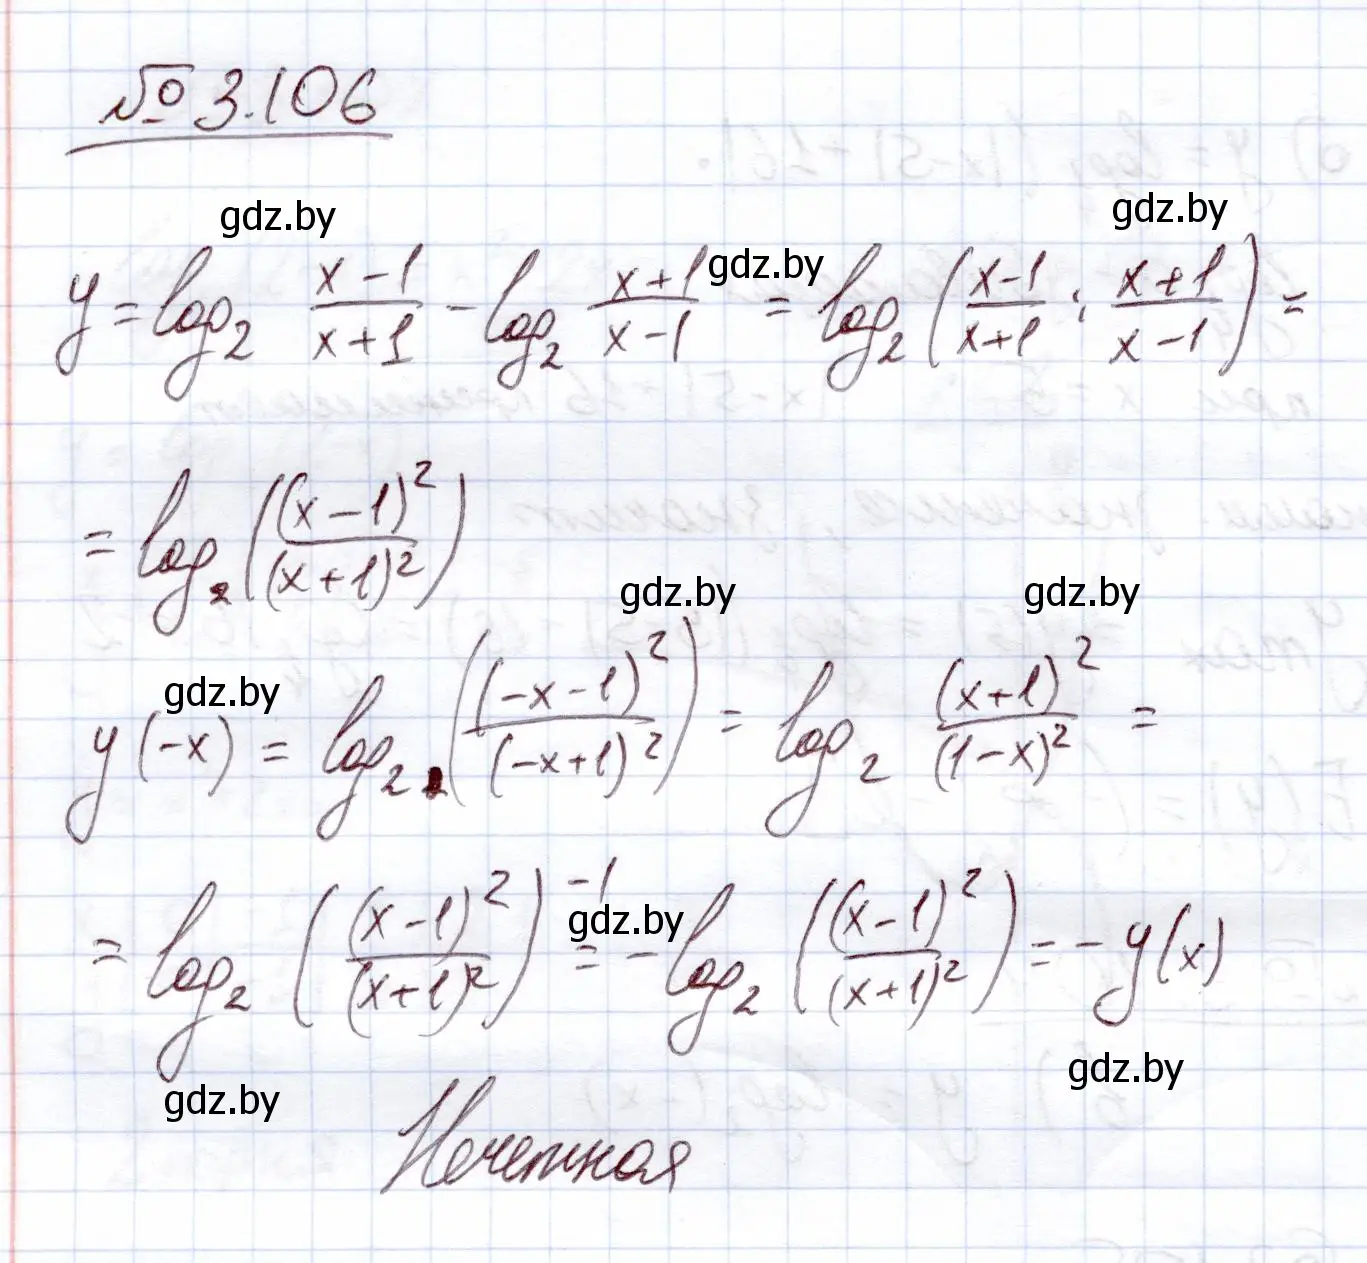 № 3.106
gdz.by gdz.by
y = log₂ (x-1)/(x+1) - log₂ (x+1)/(x-1) gdz.by = log₂((x-1)/(x+1) : (x+1)/(x-1)) =
= log₂((x-1)²/(x+1)²)
gdz.by gdz.by
gdz.by
y(-x) = log₂((-x-1)²/(-x+1)²) = log₂ (x+1)²/(1-x)² =
= log₂((x-1)²/(x+1)²)⁻¹ gdz.by = -log₂((x-1)²/(x+1)²) = -y(x)
gdz.by gdz.by
Нечетная